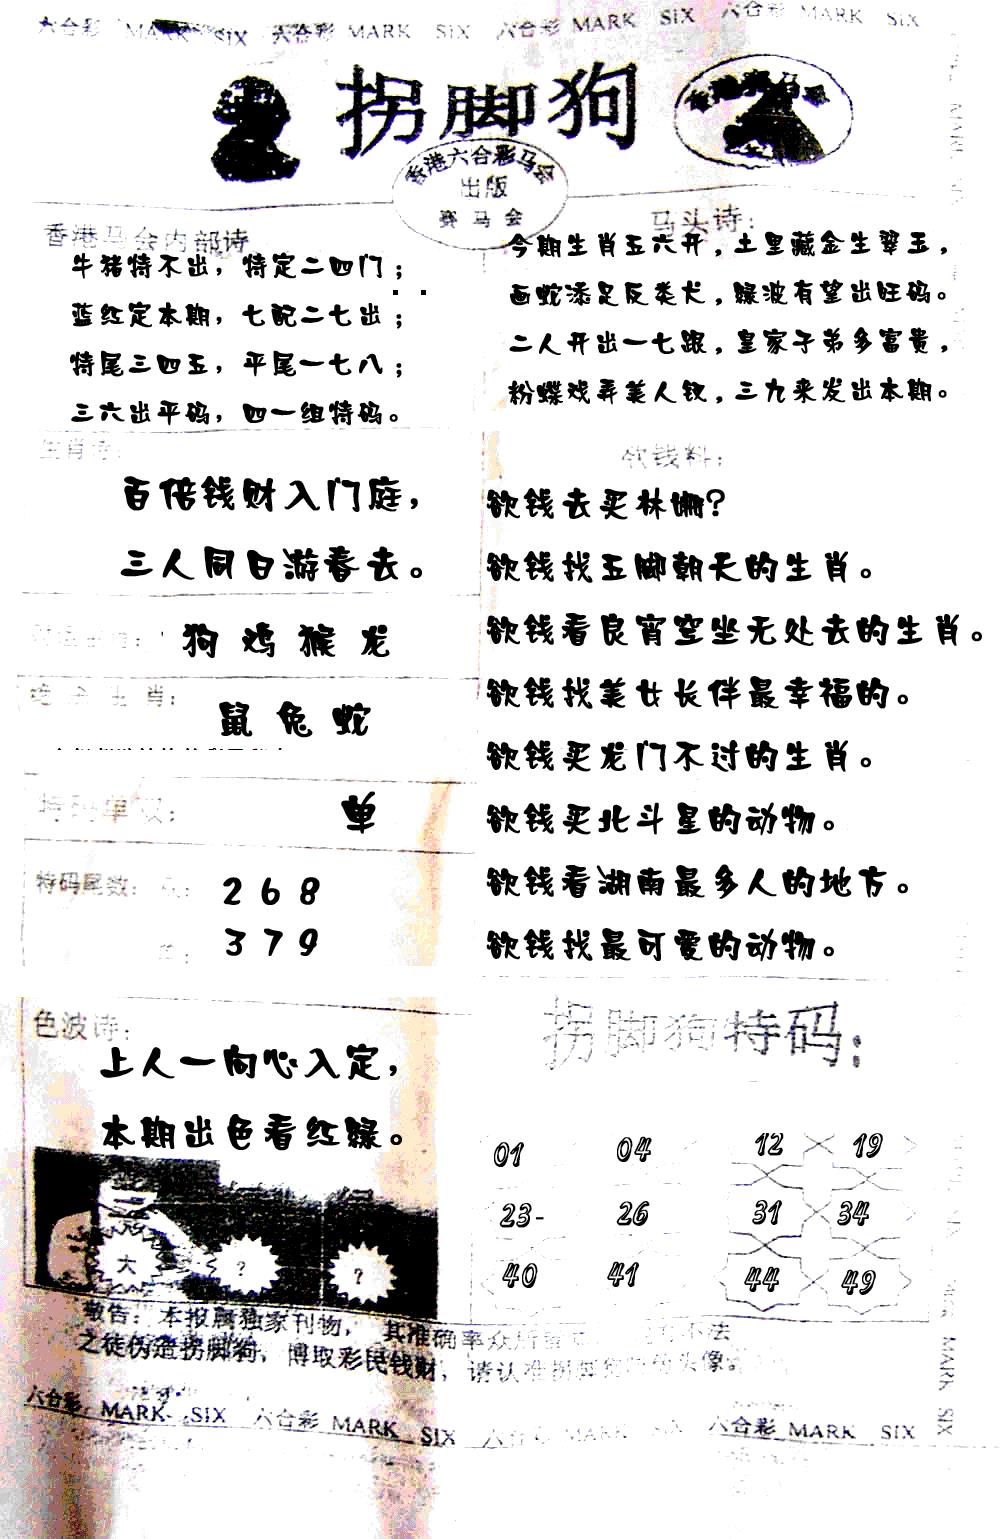 六合彩 MARK SIX 六合彩 MARK SIX 六合彩 MARK SIX 六合彩 MARK SIX
拐脚狗
香港六合彩马会
出版
赛马会
香港马会内部诗
牛猪特不出，特定二四门；
蓝红定本期，七配二七出；
特尾三四五，平尾一七八；
三六出平码，四一组特码。
马头诗：
今期生肖五六开，土里藏金生翠玉，
画蛇添足反类犬，绿波有望出旺码。
二人开出一七跟，皇家子弟多富贵，
粉蝶戏弄美人钗，三九来发出本期。
生肖诗：
百倍钱财入门庭，
三人同日游春去。
狗 鸡 猴 龙
生肖：
鼠 兔 蛇
特码单双：
单
特码尾数：
2 6 8
3 7 9
欲钱料：
欲钱去买林姗？
欲钱找五脚朝天的生肖。
欲钱看良宵空坐无处去的生肖。
欲钱找美女长伴最幸福的。
欲钱买龙门不过的生肖。
欲钱买北斗星的动物。
欲钱看湖南最多人的地方。
欲钱找最可爱的动物。
色波诗：
上人一向心入定，
本期出色看红绿。
大 ? ?
拐脚狗特码：
01 04 12 19
23- 26 31 34
40 41 44 49
敬告：本报属独家刊物，其准确率众所 不法
之徒伪造拐脚狗，博取彩民钱财，请认准拐脚 头像。
六合彩 MARK SIX 六合彩 MARK SIX 六合彩 MARK SIX 六合彩 MARK SIX
MARK SIX